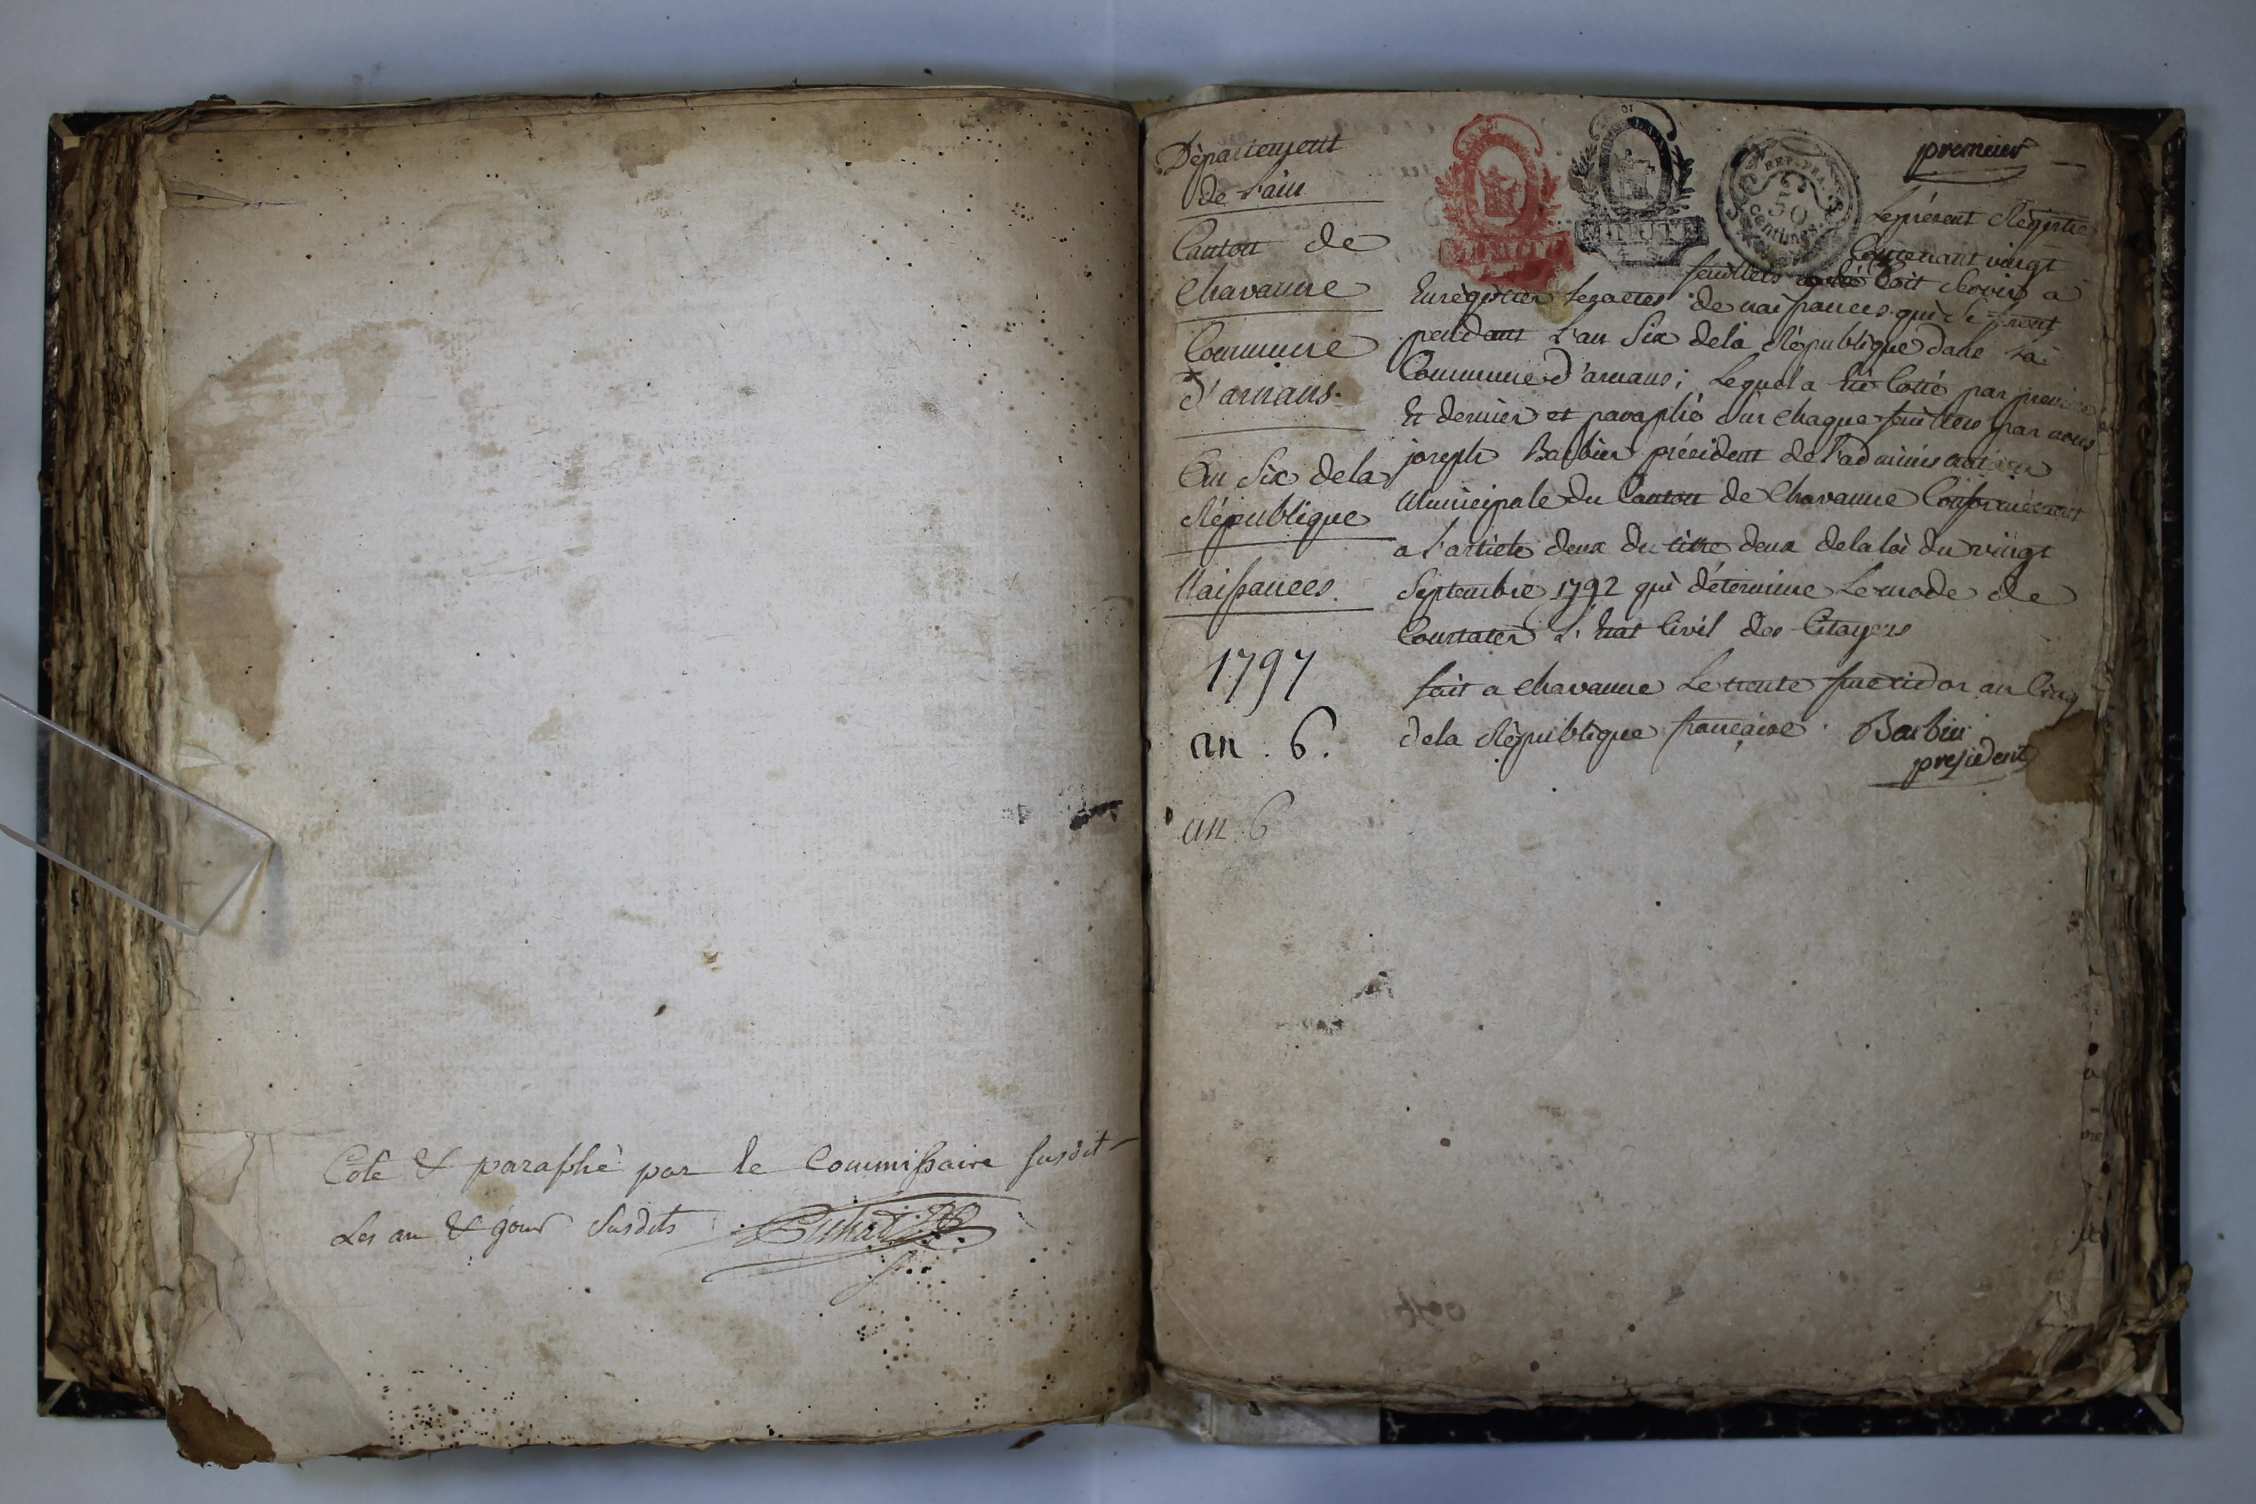 Coté & paraphé par le Commissaire susdit
Les an & jour susdits
Département
de l'ain
Canton de
Chavanne
Commune
d'arnans.
An Six de la
République
Naissances.
1797
an. 6.
an 6
REP. FRA.
50
centimes
premier
Le présent Régistre
Contenant vingt
feuillets doit servir a
Enrégistrer les actes de naissances qui se feront
pendant L'an Six de la République dans La
Commune d'arnans; Lequel a été Cotté par premier
Et dernier et paraphé sur chaque feuillets par nous
joseph Barbier président de l'administration
Municipale du Canton de Chavanne Conformément
a l'article deux du titre deux de la loi du vingt
Septembre 1792 qui détermine Le mode de
Constater L'Etat Civil des Citoyens
fait a Chavanne Le trente fructidor an Cinq
de la République française. Barbier
president